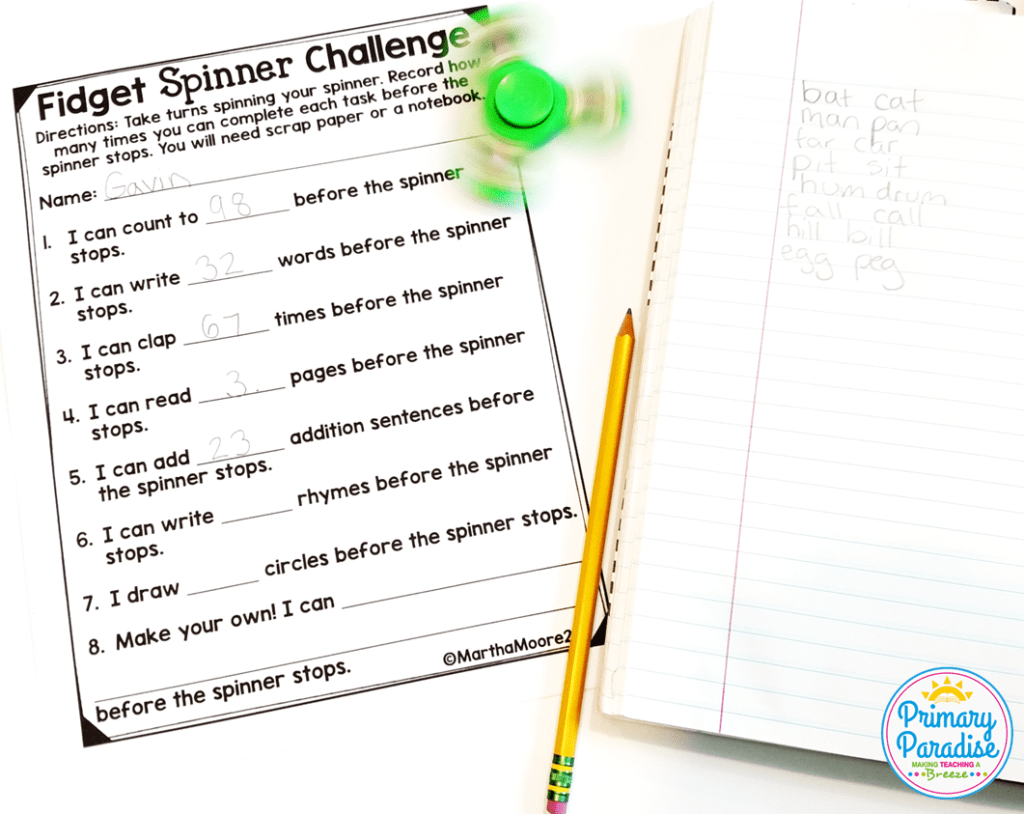 Fidget Spinner Challenge
Directions: Take turns spinning your spinner. Record how
many times you can complete each task before the
spinner stops. You will need scrap paper or a notebook.
Name: Gavin
1. I can count to 98 before the spinner
stops.
2. I can write 32 words before the spinner
stops.
3. I can clap 67 times before the spinner
stops.
4. I can read 3 pages before the spinner
stops.
5. I can add 23 addition sentences before
the spinner stops.
6. I can write ______ rhymes before the spinner
stops.
7. I draw ______ circles before the spinner stops.
8. Make your own! I can ______
before the spinner stops.
©MarthaMoore2
bat cat
man pan
far car
pit sit
hum drum
fall call
hill bill
egg peg
Primary
Paradise
MAKING TEACHING A
Breeze